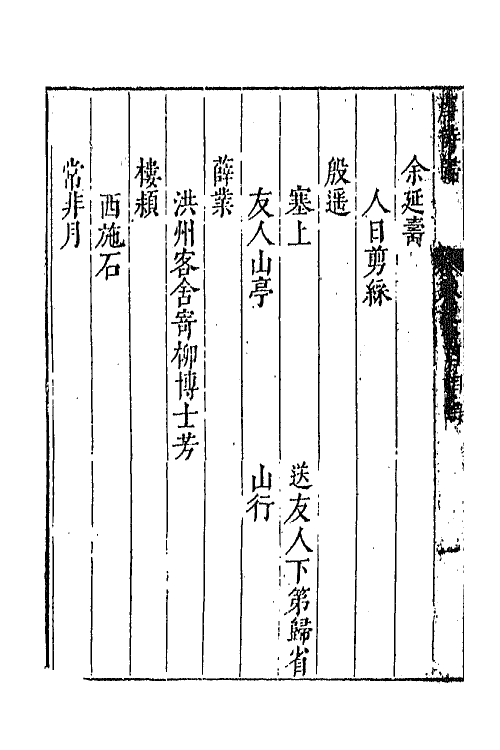 余延壽
人日剪綵
殷遥
塞上 送友人下第歸省
友人山亭 山行
薛業
洪州客舍寄柳博士芳
樓頴
西施石
常非月